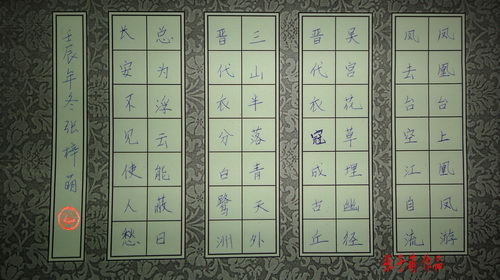 凤凰台上凰凤游
凤去台空江自流
吴宫花草埋幽径
晋代衣冠成古丘
三山半落青天外
晋代衣分白鹭洲
总为浮云能蔽日
长安不见使人愁
壬辰年冬张梓萌